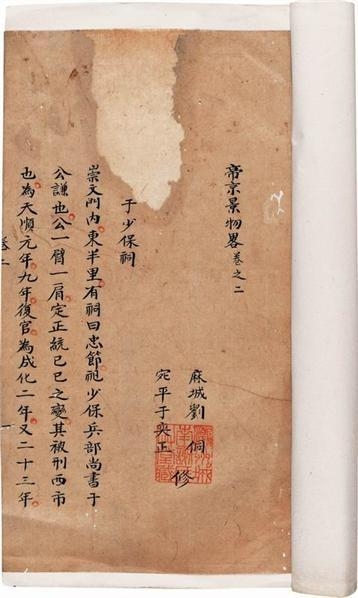 帝京景物畧卷之二
麻城劉侗
宛平于奕正
修
于少保祠
崇文門內東半里有祠曰忠節祀少保兵部尚書于
公謙也公一臂一肩定正統己巳之變其被刑西市
也為天順元年九年復官為成化二年又二十三年